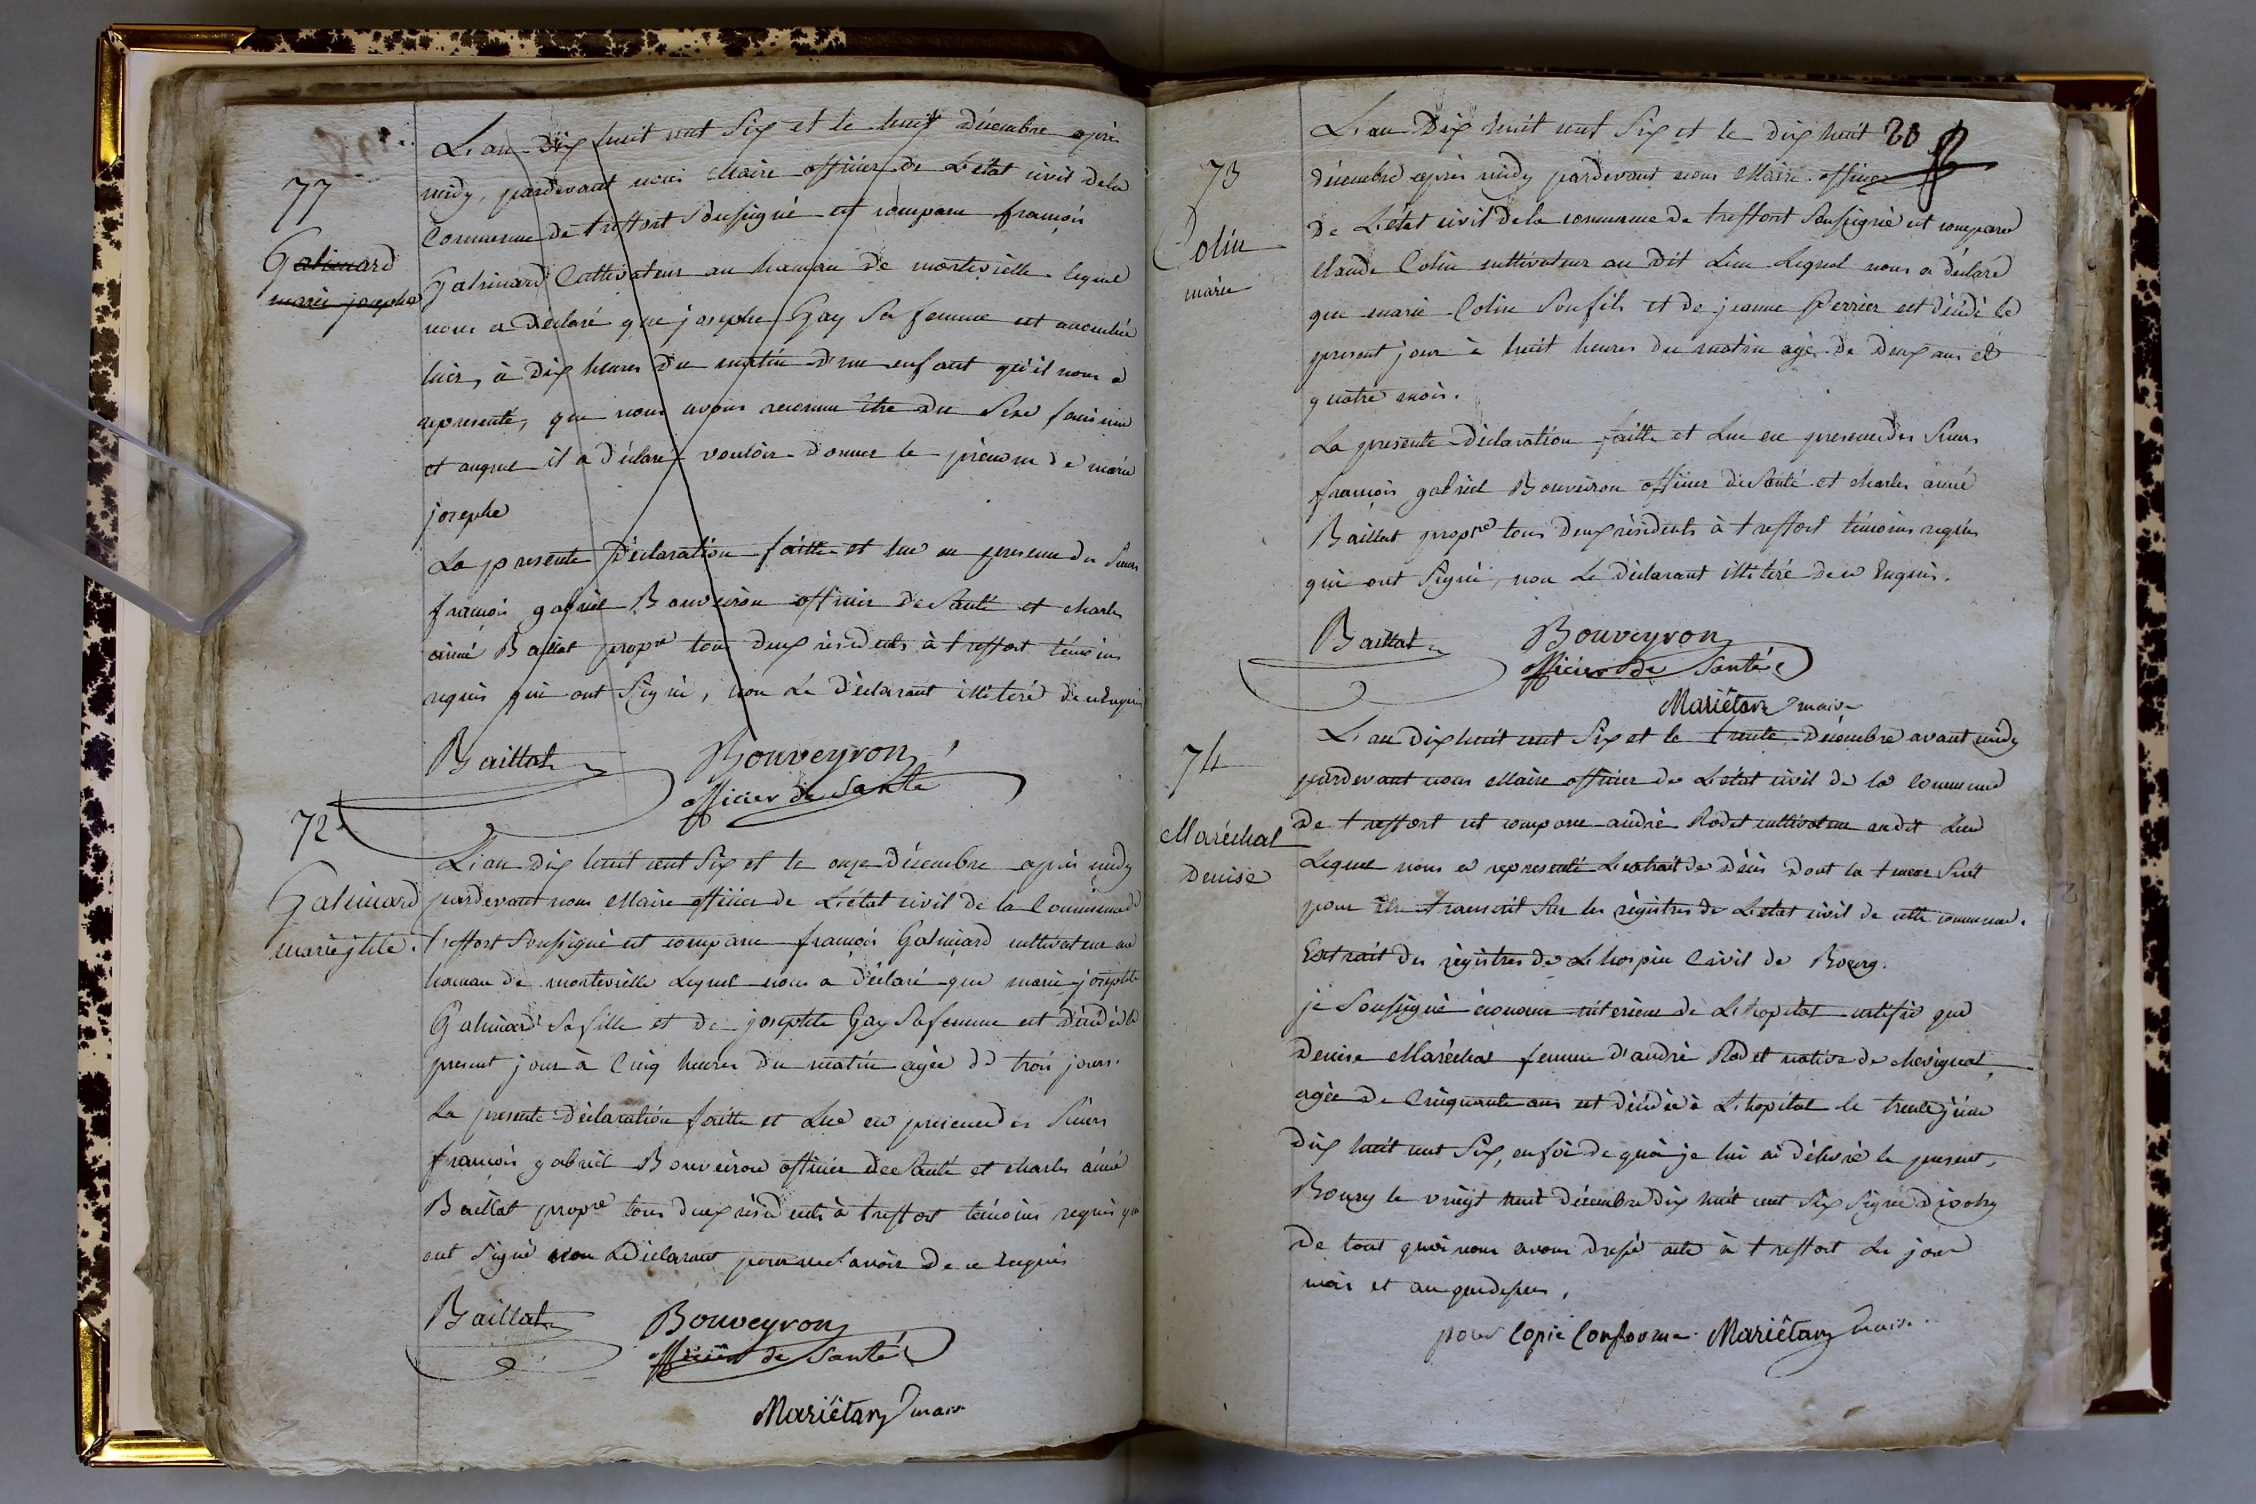 L'an dix huit cent six et le huit décembre après
midy, pardevant nous Maire officier de L'état civil dela
Commune de treffort Soussigné est comparu françois
77
Galimard
marie josephe
Galimard Cultivateur au hameau de montevielle lequel
nous a déclaré que josephe Gay Sa femme est accouchée
hier, à dix heures du matin d'un enfant qu'il nous a
representé, que nous avons reconnu être du Sexe feminin
et auquel il a déclaré vouloir donner le prénom de marie
josephe
La presente déclaration faitte et lue en presence des Sieurs
françois gabriel Bouveiron officier de Santé et charles
aimé Baillat propre tous deux résidents à treffort témoins
requis qui ont Signé, non Le déclarant illiteré de ce Enquis
Baillat Bouveyron
officier de Santé
72
L'an dix huit cent six et le onze décembre après midy
Galimard
marie jtile.
pardevant nous Maire officier de L'état civil de la Commune de
treffort Soussigné est comparu françois Galimard cultivateur au
hameau de montevielle Lequel nous a déclaré que marie josephte
Galimard Sa fille et de josephte Gay Sa femme est décédée le
present jour à Cinq heures du matin agée de trois jours.
La presente déclaration faitte et Lue en presence des Sieurs
françois gabriel Bouveiron officier de Santé et charles aimé
Baillat propre tous deux résidents à treffort témoins requis qui
ont Signé non Le déclarant pour ne Savoir de ce Enquis
Baillat Bouveyron
officier de Santé
Mariëtan maire
20
L'an Dix huit cent Six et le dix huit
73
Colin
marie
décembre après midy pardevant nous Maire officier
de L'état civil dela commune de treffort Soussigné est comparu
Claude Colin cultivateur au dit Lieu Lequel nous a déclaré
que marie Colin Son fils et de jeanne Perrier est décédé le
present jour à huit heures du matin agé de deux ans et
quatre mois.
La presente déclaration faitte et Lue en presence des Sieurs
françois gabriel Bouveiron officier de Santé et charles aimé
Baillat propre tous deux résidents à treffort témoins requis
qui ont Signé, non Le déclarant illiteré de ce Enquis.
Baillat Bouveyron
officier de Santé
Mariëtan maire
74
Maréchal
Denise
L'an dix huit cent Six et le trente Décembre avant midy
pardevant nous Maire officier de L'état civil de la commune
de treffort est comparu andré Rodet cultivateur audit Lieu
Lequel nous a representé L'extrait de décès dont la teneur Suit
pour être transcrit Sur les régistres de L'état civil de cette commune.
Extrait des régistres de L'hospice Civil de Bourg.
je Soussigné économe intérieur de L'hopital certifie que
Denise Maréchal femme d'andré Rodet native de chevignat,
agée de Cinquante ans est décédée à L'hopital le trente juin
dix huit cent Six, en foi de quoi je lui ai délivré le present,
Bourg le vingt huit décembre dix huit cent Six Signé
De tout quoi nous avons dressé acte à treffort Les jour
mois et an que dessus,
pour Copie Conforme. Mariëtan maire.